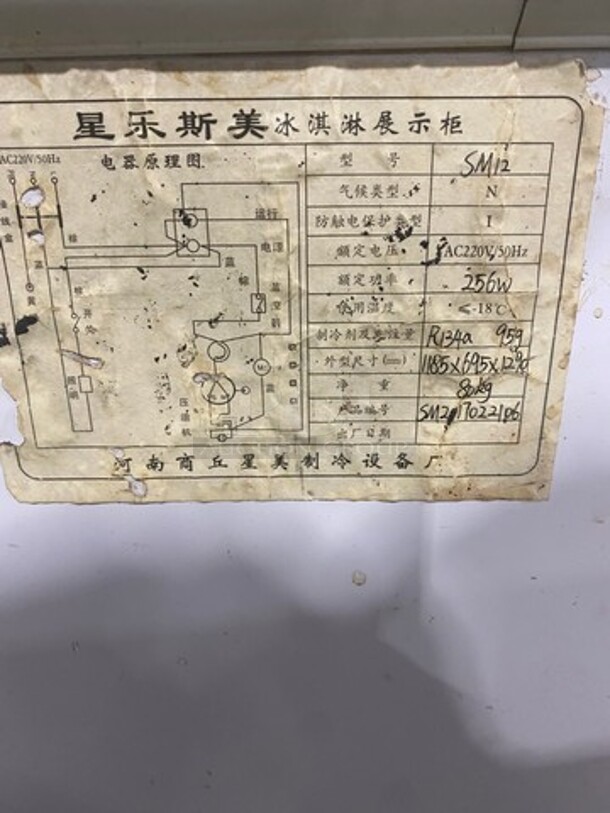 星乐斯美冰淇淋展示柜
AC220V/50Hz
电器原理图
型 号 SM12
气候类型 N
防触电保护类型 I
额定电压 AC220V/50Hz
额定功率 256W
使用温度 ≤-18℃
制冷剂及充注量 R134a 95g
外型尺寸(mm) 1185X695X12
净 重 80kg
产品编号 17022106
出厂日期
运行
电源
棕
蓝
棕
蓝
黄
压缩机
河南商丘星美制冷设备厂